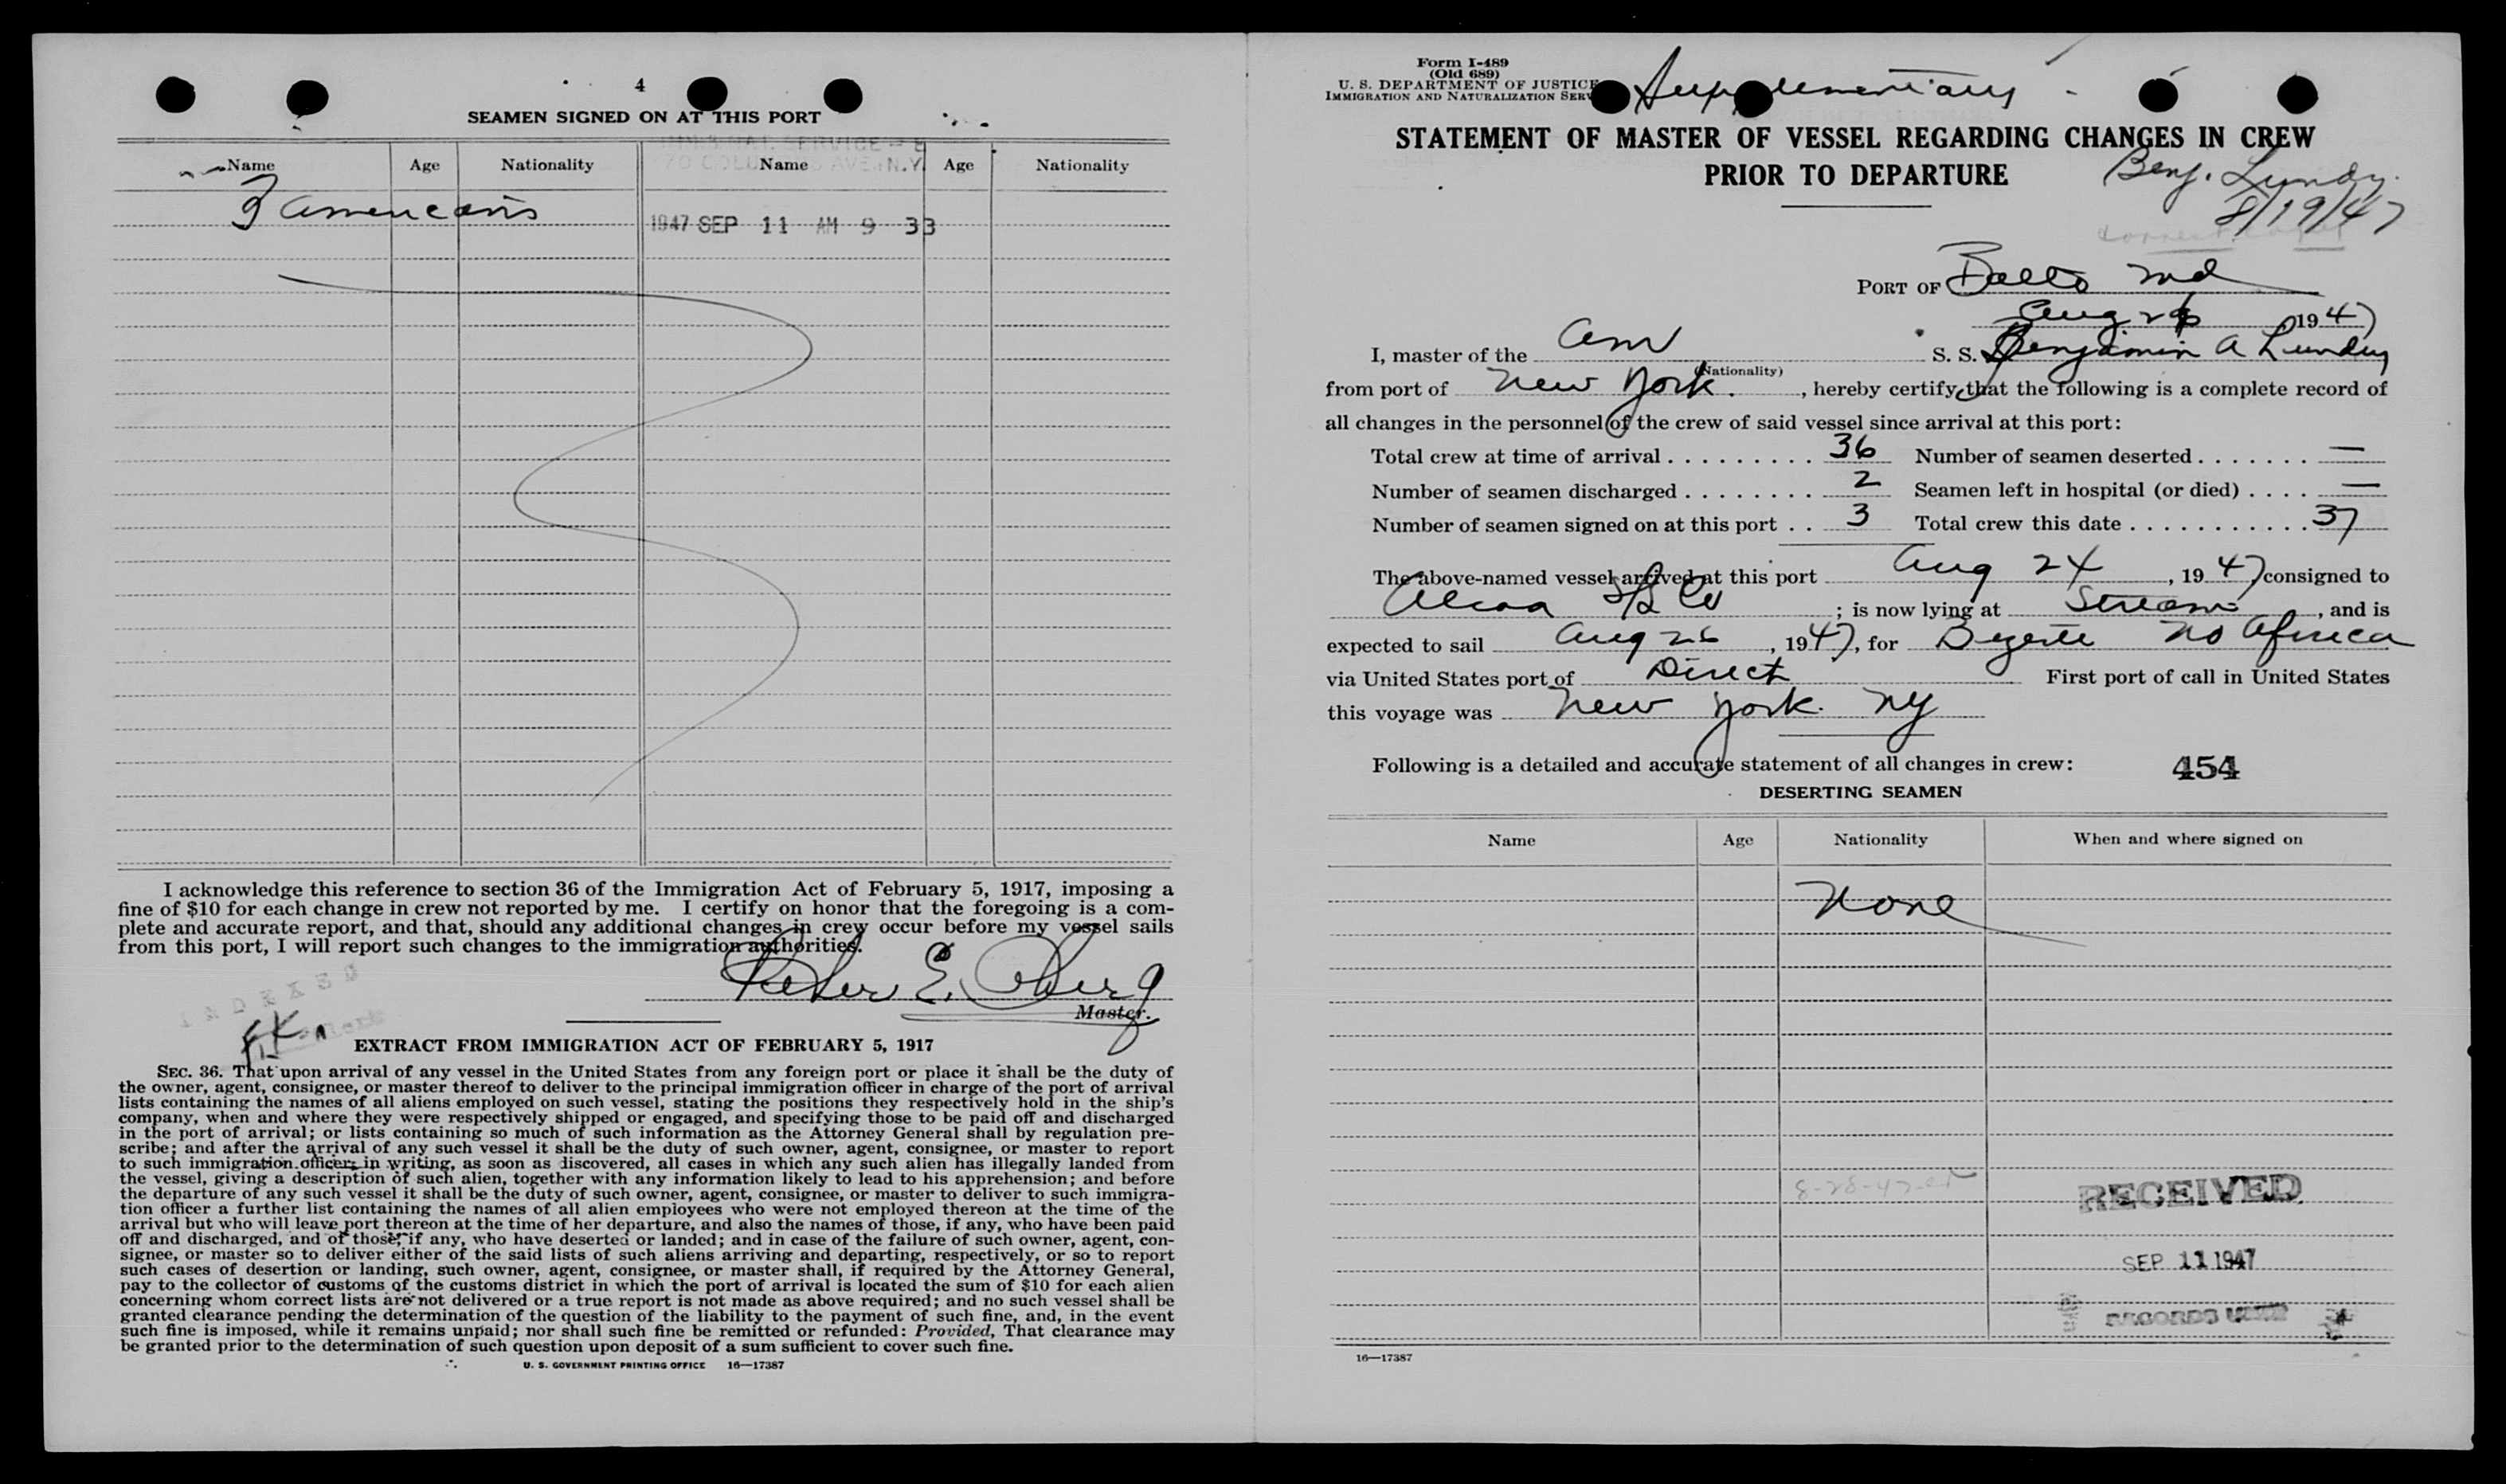 4
SEAMEN SIGNED ON AT THIS PORT
Name Age Nationality Name Age Nationality
3 Americans
1947 SEP 11 AM 9 33
I acknowledge this reference to section 36 of the Immigration Act of February 5, 1917, imposing a
fine of $10 for each change in crew not reported by me. I certify on honor that the foregoing is a com-
plete and accurate report, and that, should any additional changes in crew occur before my vessel sails
from this port, I will report such changes to the immigration authorities.
E.
Master.
INDEXED
EXTRACT FROM IMMIGRATION ACT OF FEBRUARY 5, 1917
SEC. 36. That upon arrival of any vessel in the United States from any foreign port or place it shall be the duty of
the owner, agent, consignee, or master thereof to deliver to the principal immigration officer in charge of the port of arrival
lists containing the names of all aliens employed on such vessel, stating the positions they respectively hold in the ship's
company, when and where they were respectively shipped or engaged, and specifying those to be paid off and discharged
in the port of arrival; or lists containing so much of such information as the Attorney General shall by regulation pre-
scribe; and after the arrival of any such vessel it shall be the duty of such owner, agent, consignee, or master to report
to such immigration officer, in writing, as soon as discovered, all cases in which any such alien has illegally landed from
the vessel, giving a description of such alien, together with any information likely to lead to his apprehension; and before
the departure of any such vessel it shall be the duty of such owner, agent, consignee, or master to deliver to such immigra-
tion officer a further list containing the names of all alien employees who were not employed thereon at the time of the
arrival but who will leave port thereon at the time of her departure, and also the names of those, if any, who have been paid
off and discharged, and of those, if any, who have deserted or landed; and in case of the failure of such owner, agent, con-
signee, or master so to deliver either of the said lists of such aliens arriving and departing, respectively, or so to report
such cases of desertion or landing, such owner, agent, consignee, or master shall, if required by the Attorney General,
pay to the collector of customs of the customs district in which the port of arrival is located the sum of $10 for each alien
concerning whom correct lists are not delivered or a true report is not made as above required; and no such vessel shall be
granted clearance pending the determination of the question of the liability to the payment of such fine, and, in the event
such fine is imposed, while it remains unpaid; nor shall such fine be remitted or refunded: Provided, That clearance may
be granted prior to the determination of such question upon deposit of a sum sufficient to cover such fine.
U. S. GOVERNMENT PRINTING OFFICE 16—17387
Form I-489
(Old 689)
U. S. DEPARTMENT OF JUSTICE
IMMIGRATION AND NATURALIZATION SERV
Supplementary
STATEMENT OF MASTER OF VESSEL REGARDING CHANGES IN CREW
PRIOR TO DEPARTURE
Benj. Lundy
8/19/47
PORT OF Balto Md
Aug 26 1947
I, master of the Am S. S. Benjamin A Lundy
(Nationality)
from port of New York., hereby certify that the following is a complete record of
all changes in the personnel of the crew of said vessel since arrival at this port:
Total crew at time of arrival . . . . . . . . . . 36 Number of seamen deserted . . . . . . . —
Number of seamen discharged . . . . . . . . 2 Seamen left in hospital (or died) . . . . —
Number of seamen signed on at this port . . 3 Total crew this date . . . . . . . . . . . 37
The above-named vessel arrived at this port Aug 24, 1947, consigned to
Alcoa S/S Co; is now lying at Stream, and is
expected to sail Aug 26, 1947, for Bizerte No Africa
via United States port of Direct First port of call in United States
this voyage was New York. NY
Following is a detailed and accurate statement of all changes in crew: 454
DESERTING SEAMEN
Name Age Nationality When and where signed on
None
8-28-47
RECEIVED
SEP 11 1947
RECORDS
16—17387